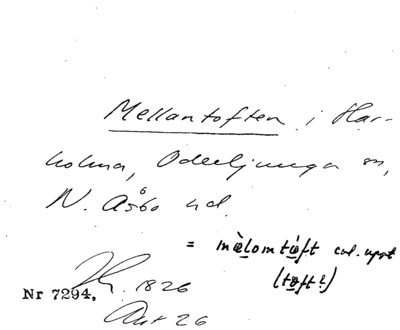 Mellantoften i Har-
holma, Oderljunga sn,
N. Åsbo hd.
= mèlomtòft enl. uppt
(tøft?)
1826
Nr 7294.
Akt 26